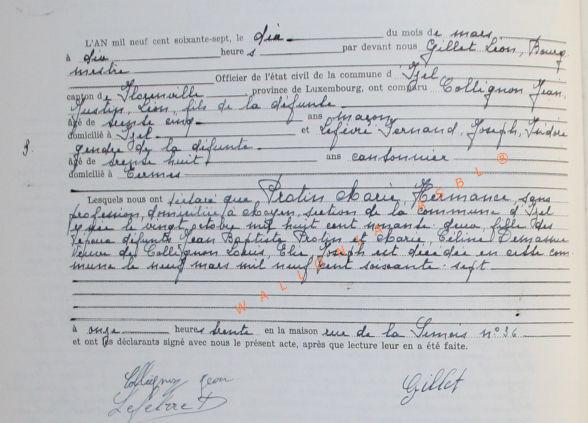 L'AN mil neuf cent soixante-sept, le dix du mois de mars
à dix heures par devant nous Gillet Léon, Bourg
mestre Officier de l'état civil de la commune d'Izel
canton de Florenville, province de Luxembourg, ont comparu Collignon Jean,
Justin, Léon, fils de la défunte
âgé de trente cinq ans maçon
domicilié à Izel et Lefèvre Fernand, Joseph, Isidore
9.
gendre de la défunte
âgé de trente huit ans cantonnier
domicilié à Termes
Lesquels nous ont déclaré que Protin Marie, Hermance, sans
profession, domiciliée à Moyen, section de la commune d'Izel
y née le vingt octobre mil huit cent nonante deux, fille des
époux défunts Jean Baptiste Protin et Marie, Céline
Veuve de Collignon Louis, Elie, Joseph est décédée en cette com
mune le neuf mars mil neuf cent soixante-sept
WALLONIA ASBL ®
à onze heures trente en la maison rue de la Semois n° 36
et ont les déclarants signé avec nous le présent acte, après que lecture leur en a été faite.
Collignon Jean Gillet
Lefebvre